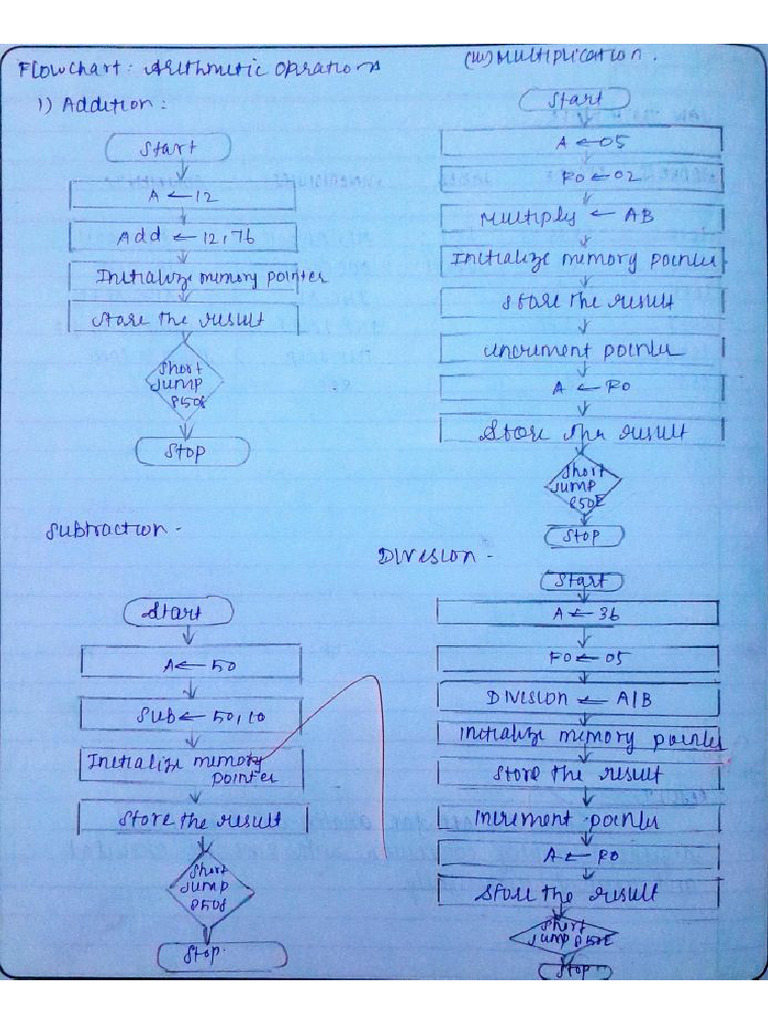 Flowchart: Arithmetic Opration
1) Addition:
Start
A ← 12
Add ← 12,76
Initialize memory pointer
Store the result
Short
Jump
8508
Stop
(iii) Multiplication.
Start
A ← 05
F0 ← 02
Multiply ← AB
Initialize memory pointer
Store the result
increment pointer
A ← F0
Store the result
Short
Jump
850E
Stop
Subtraction -
Start
A ← 50
Sub ← 50,10
Initialize memory
pointer
Store the result
Short
Jump
8508
Stop.
Division -
Start
A ← 36
F0 ← 05
Division ← A/B
initialize memory pointer
Store the result
Increment pointer
A ← F0
Store the result
Short
Jump 850E
Stop